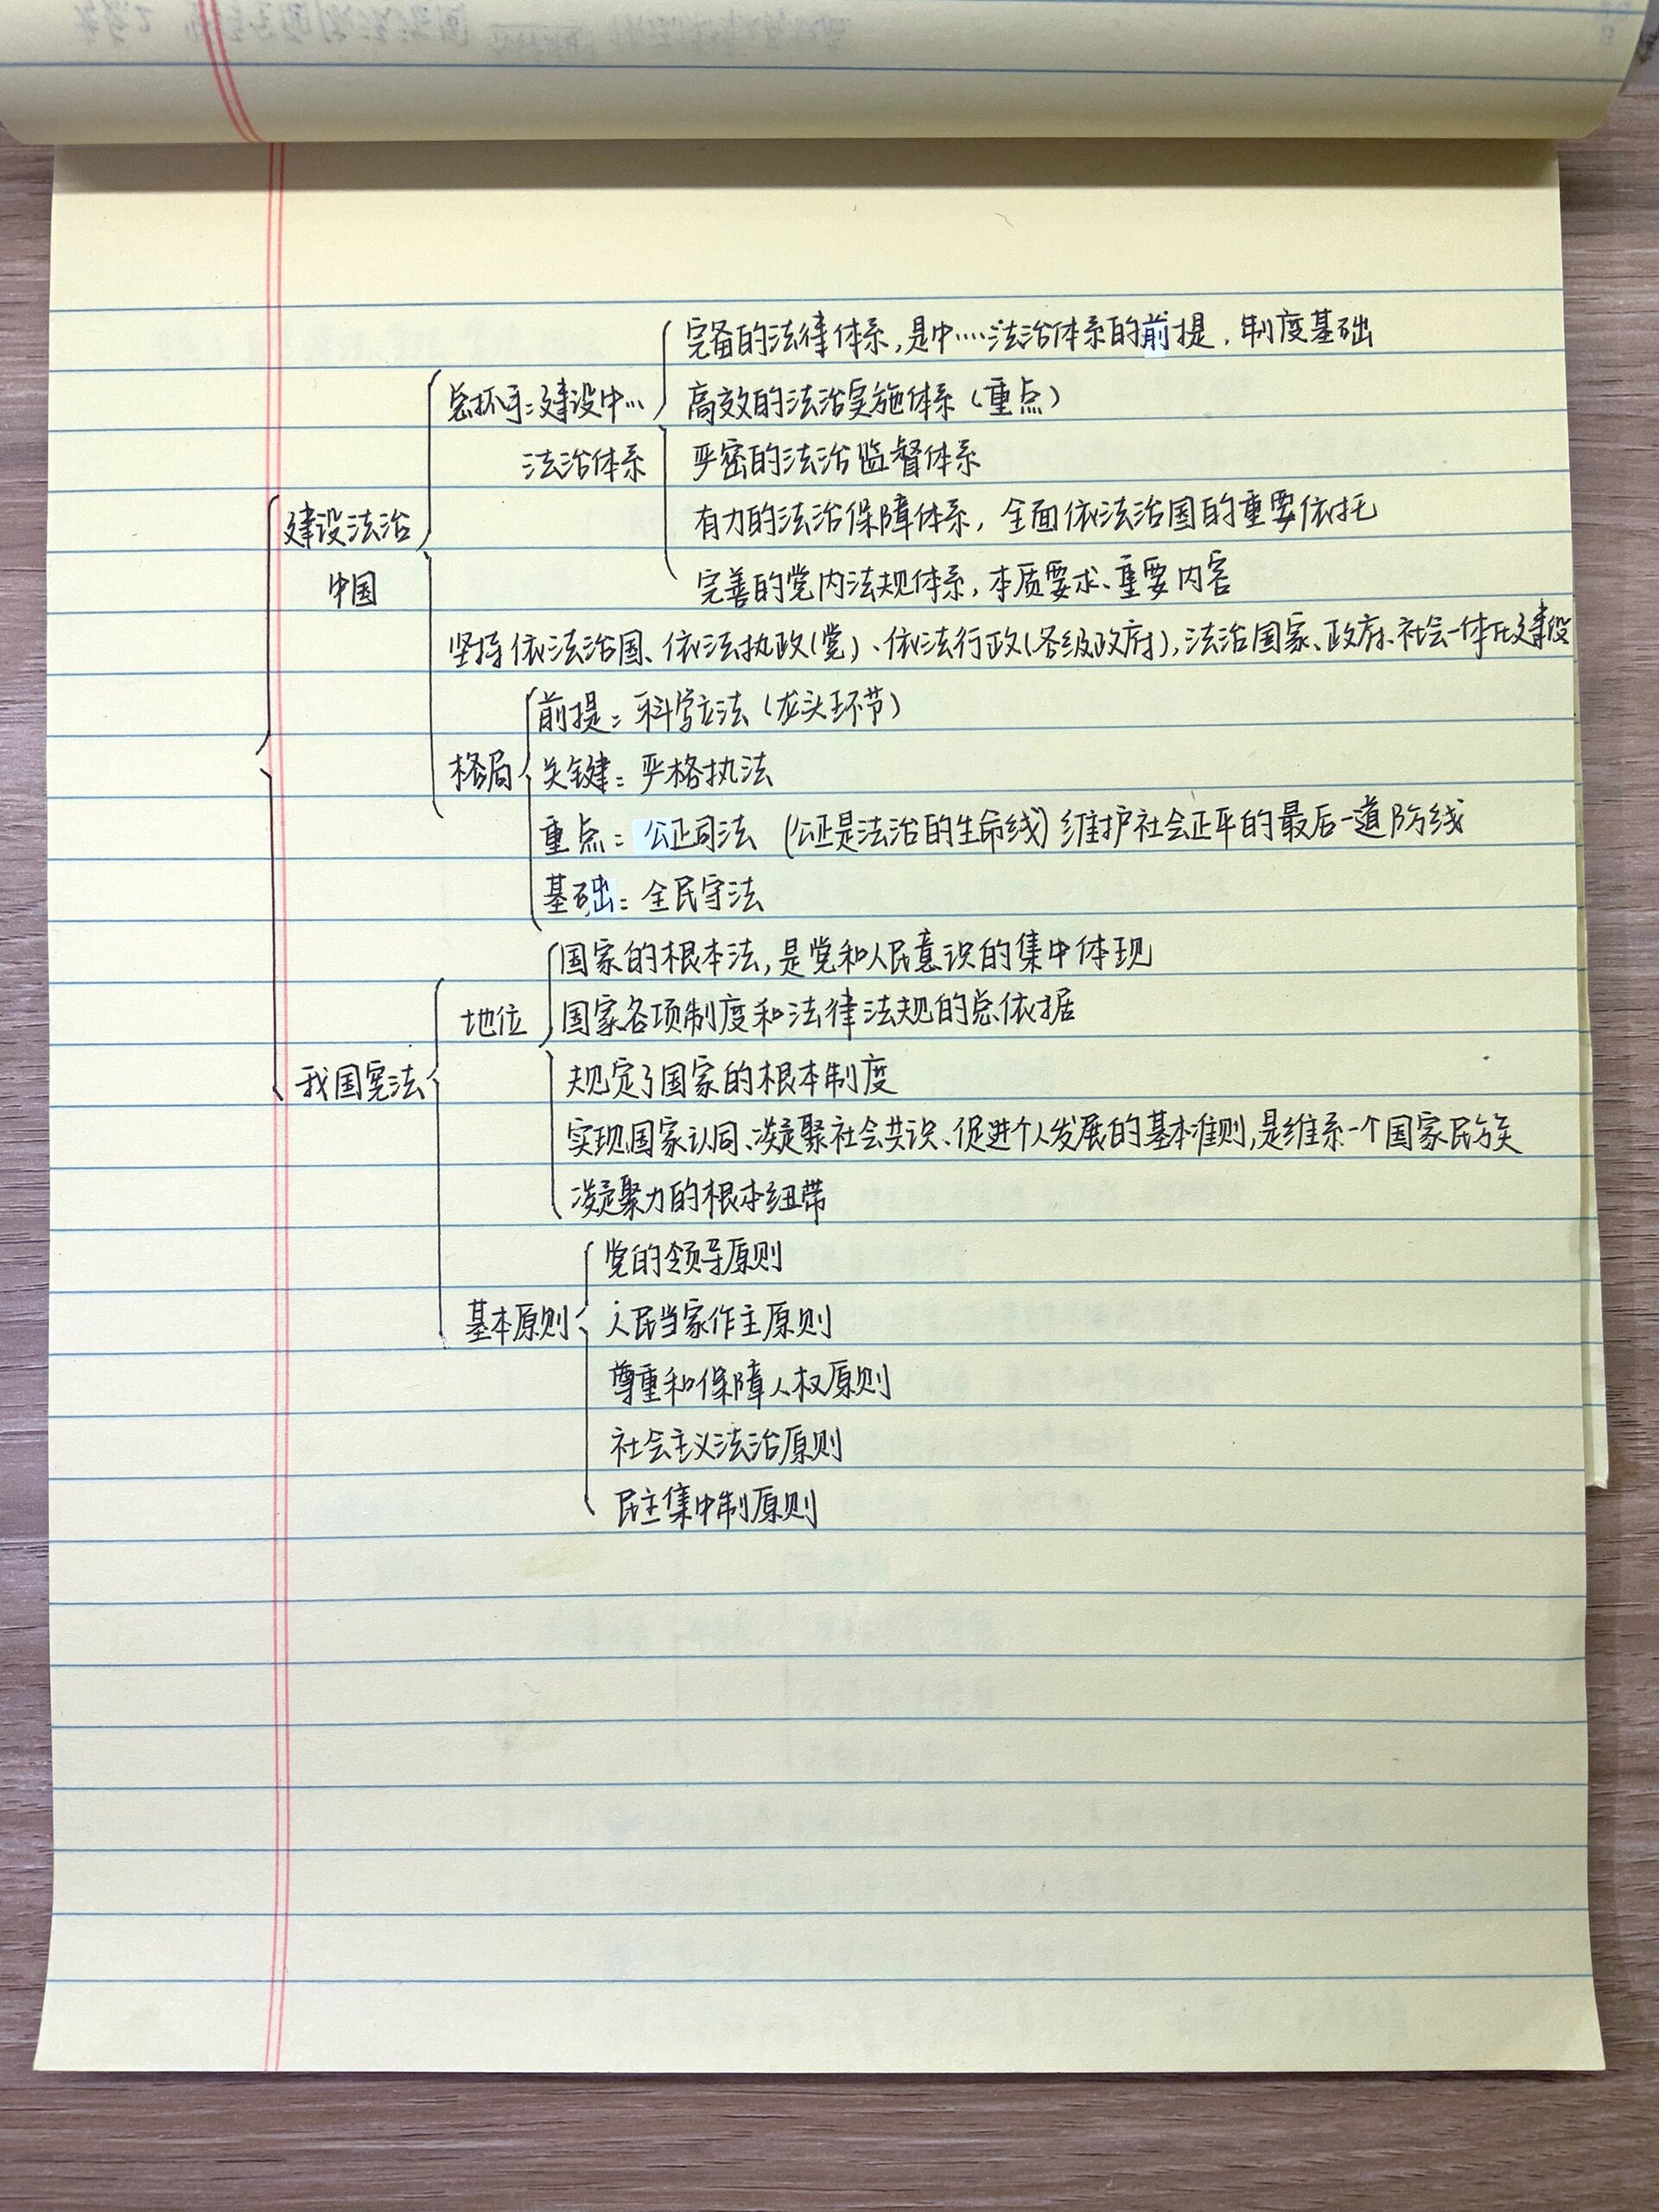 完备的法律体系,是中……法治体系的前提,制度基础
总抓手:建设中…
高效的法治实施体系(重点)
法治体系
严密的法治监督体系
有力的法治保障体系,全面依法治国的重要依托
建设法治
中国
完善的党内法规体系,本质要求、重要内容
坚持依法治国、依法执政(党)、依法行政(各级政府),法治国家、政府、社会一体化建设
前提:科学立法(龙头环节)
格局
关键:严格执法
重点:公正司法 (公正是法治的生命线)维护社会正平的最后一道防线
基础:全民守法
国家的根本法,是党和人民意识的集中体现
地位
国家各项制度和法律法规的总依据
我国宪法
规定了国家的根本制度
实现国家认同、凝聚社会共识、促进个人发展的基本准则,是维系一个国家民族
凝聚力的根本纽带
党的领导原则
基本原则
人民当家作主原则
尊重和保障人权原则
社会主义法治原则
民主集中制原则